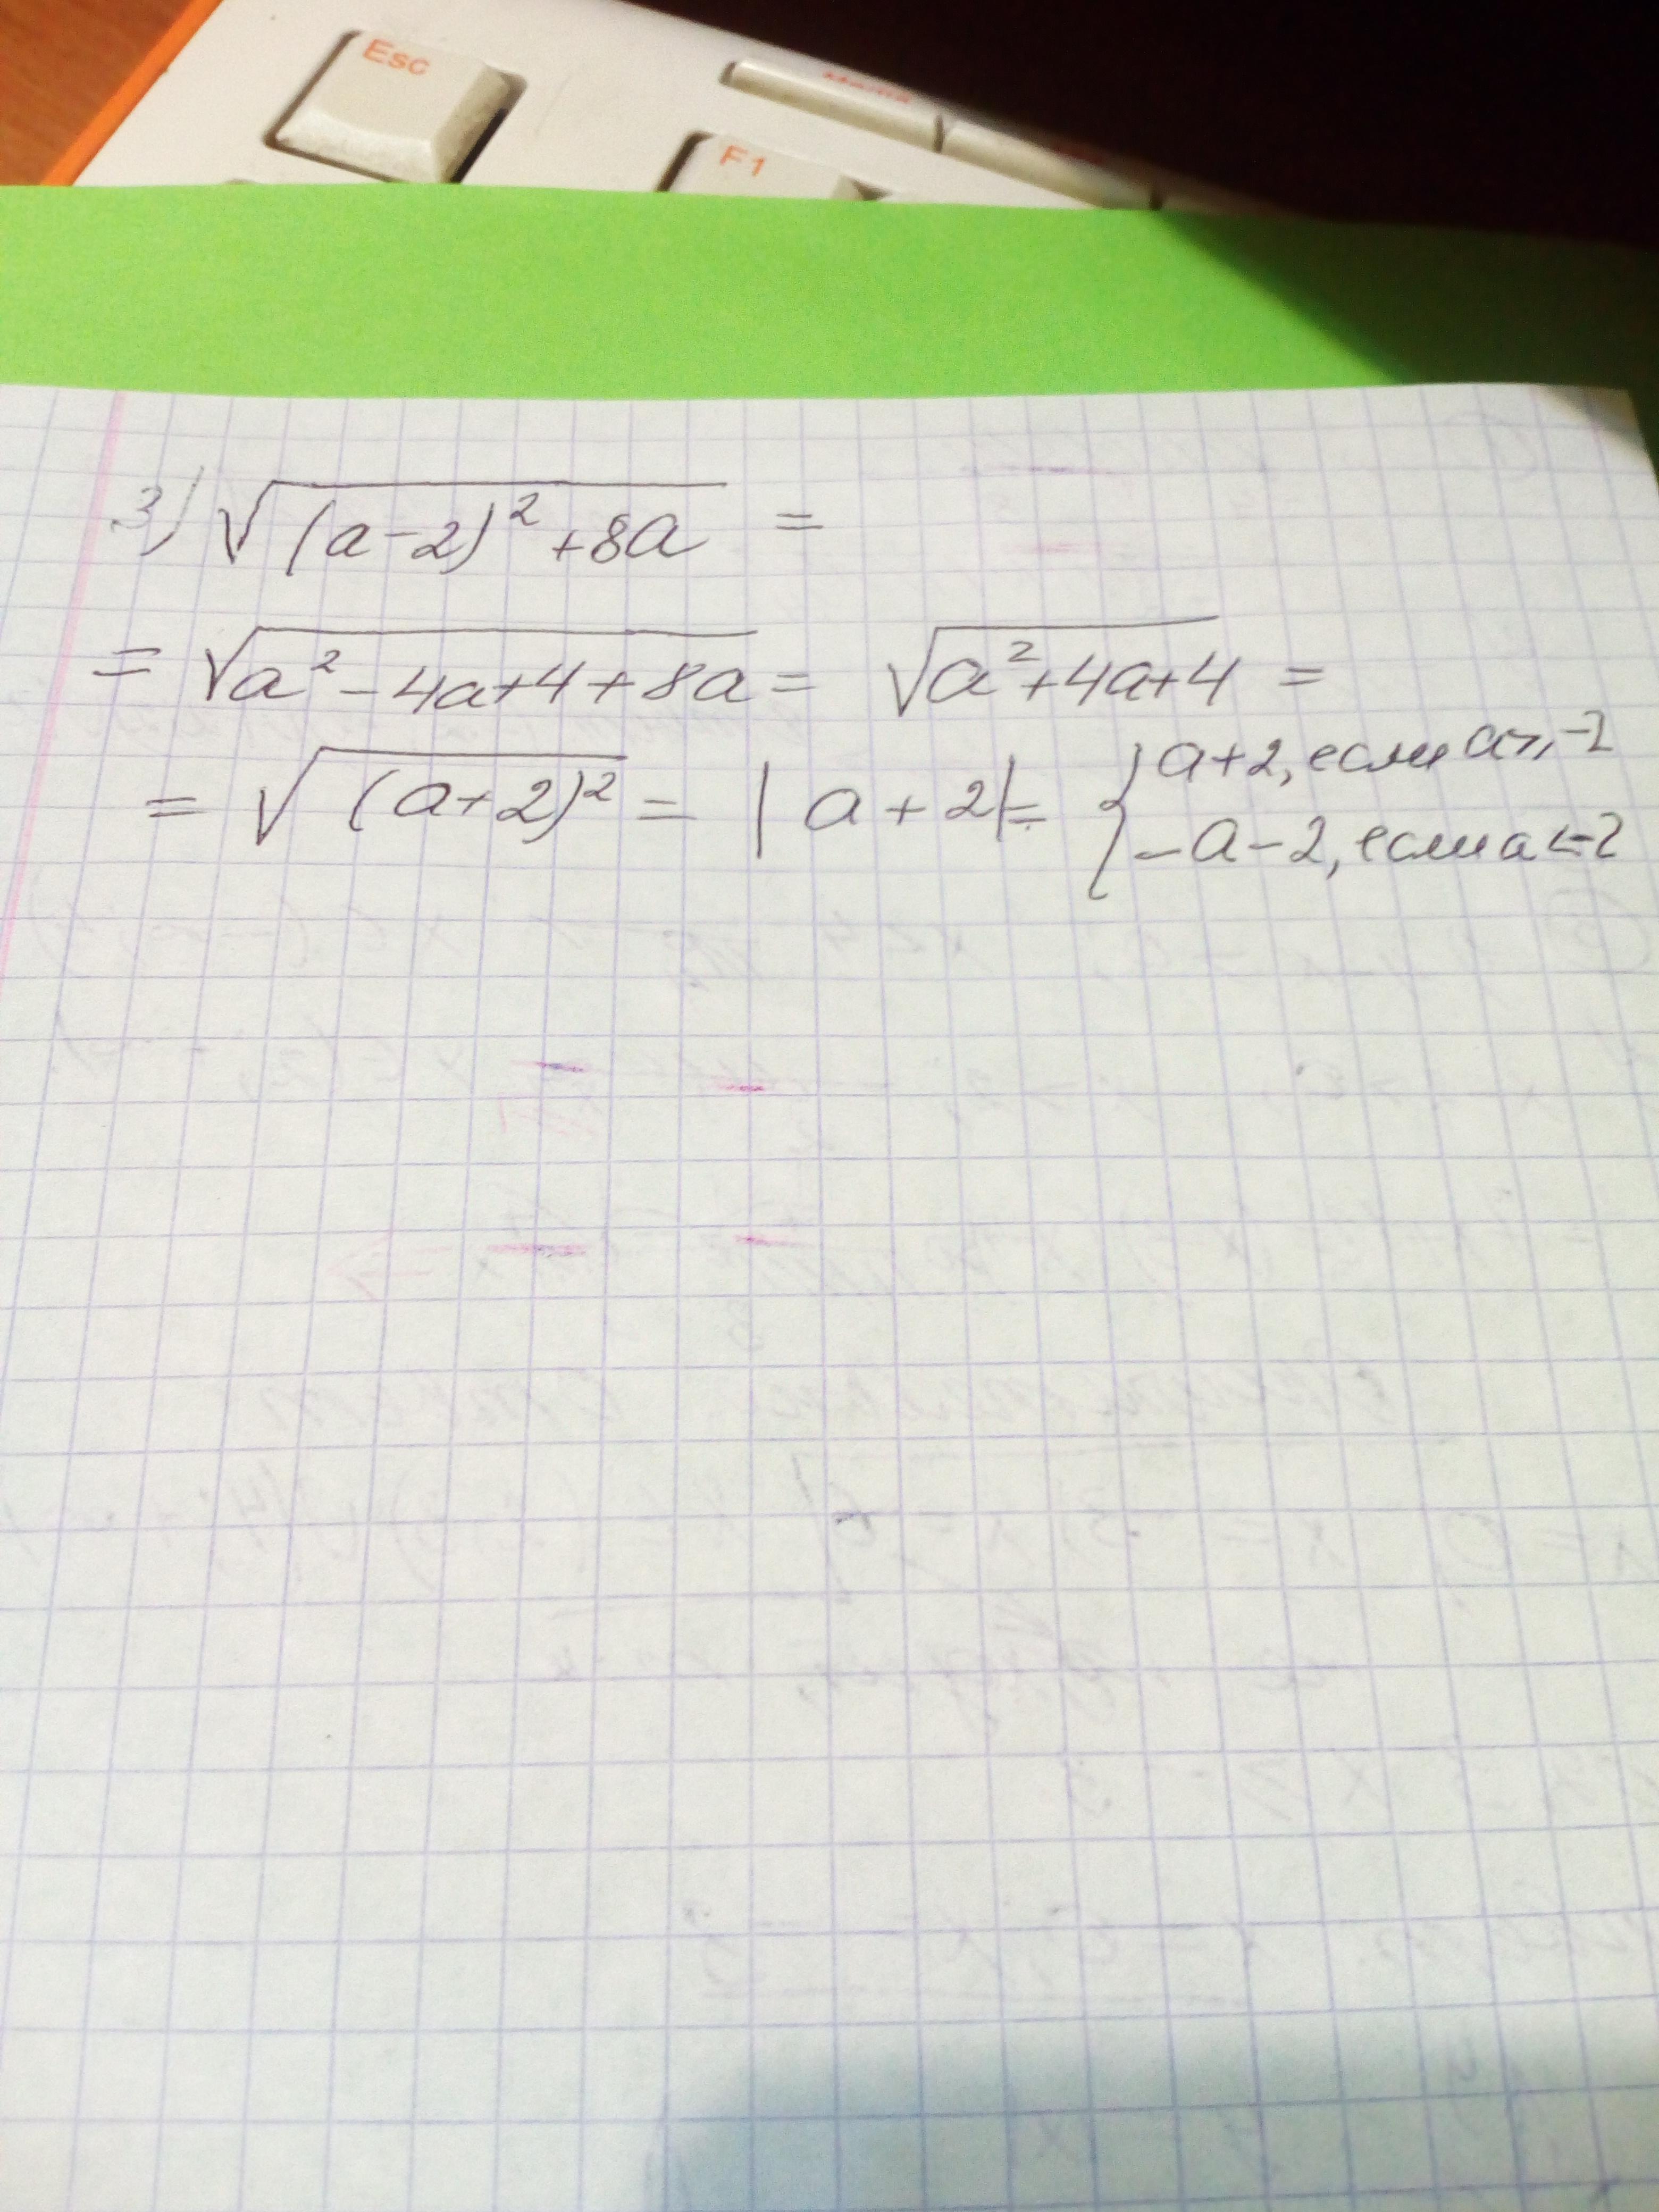 Esc
F1
3) √(a-2)² +8a =
= √a² - 4a+4+8a = √a²+4a+4 =
= √(a+2)² = |a+2| = { a+2, если a⩾-2
-a-2, если a<-2